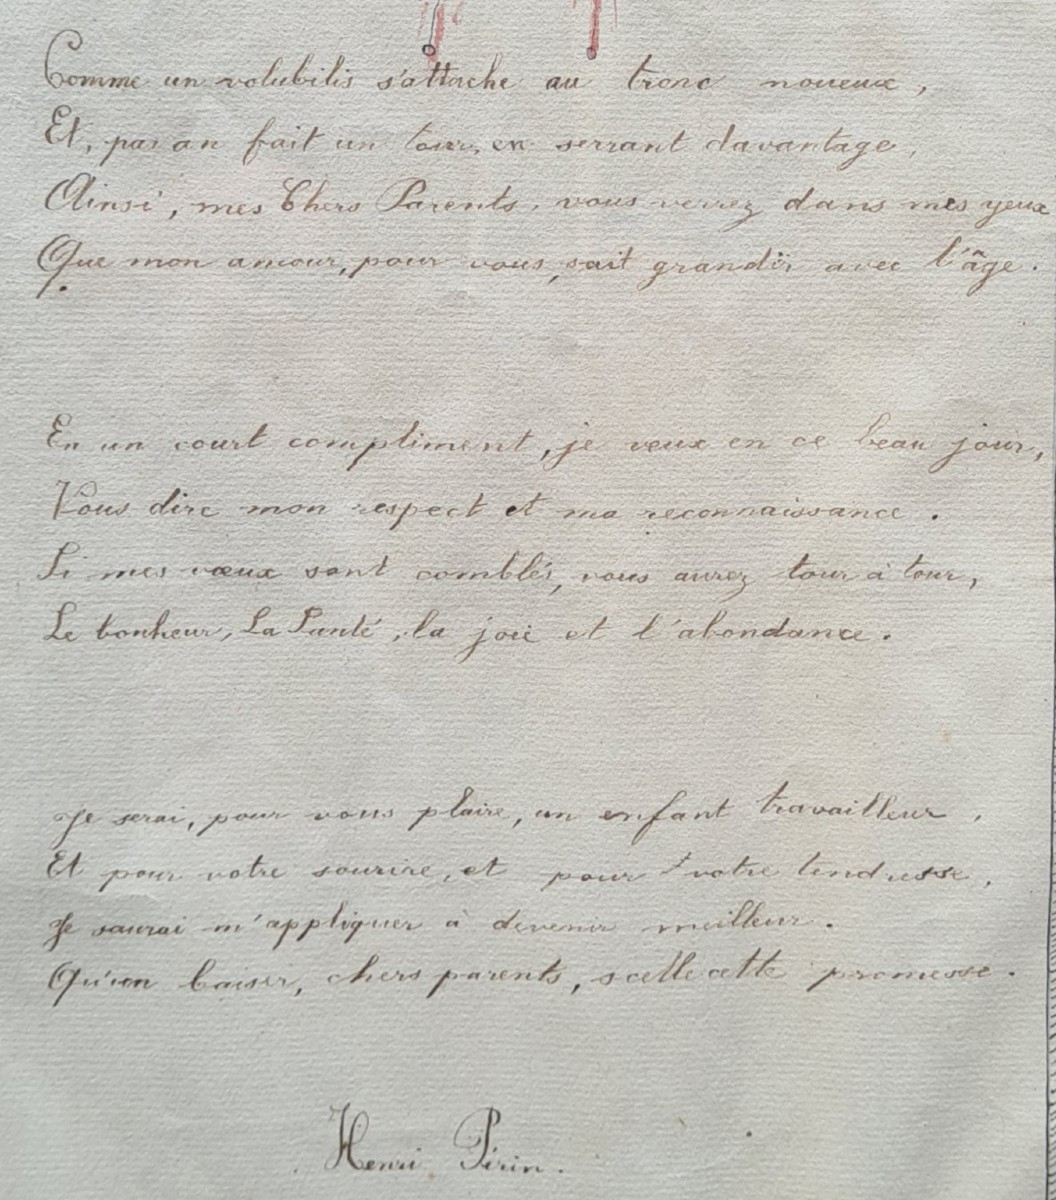 Comme un volubilis s'attache au tronc noueux,
Et, par an fait un tour, en serrant davantage,
Ainsi, mes Chers Parents, vous verrez dans mes yeux
Que mon amour, pour vous, sait grandir avec l'âge.
En un court compliment, je veux en ce beau jour,
Vous dire mon respect et ma reconnaissance.
Si mes vœux sont comblés, vous aurez tour à tour,
Le bonheur, La Santé, la joie et l'abondance.
Je serai, pour vous plaire, un enfant travailleur,
Et pour votre sourire, et pour votre tendresse,
Je saurai m'appliquer à devenir meilleur.
Qu'un baiser, chers parents, scelle cette promesse.
Henri Pirin.